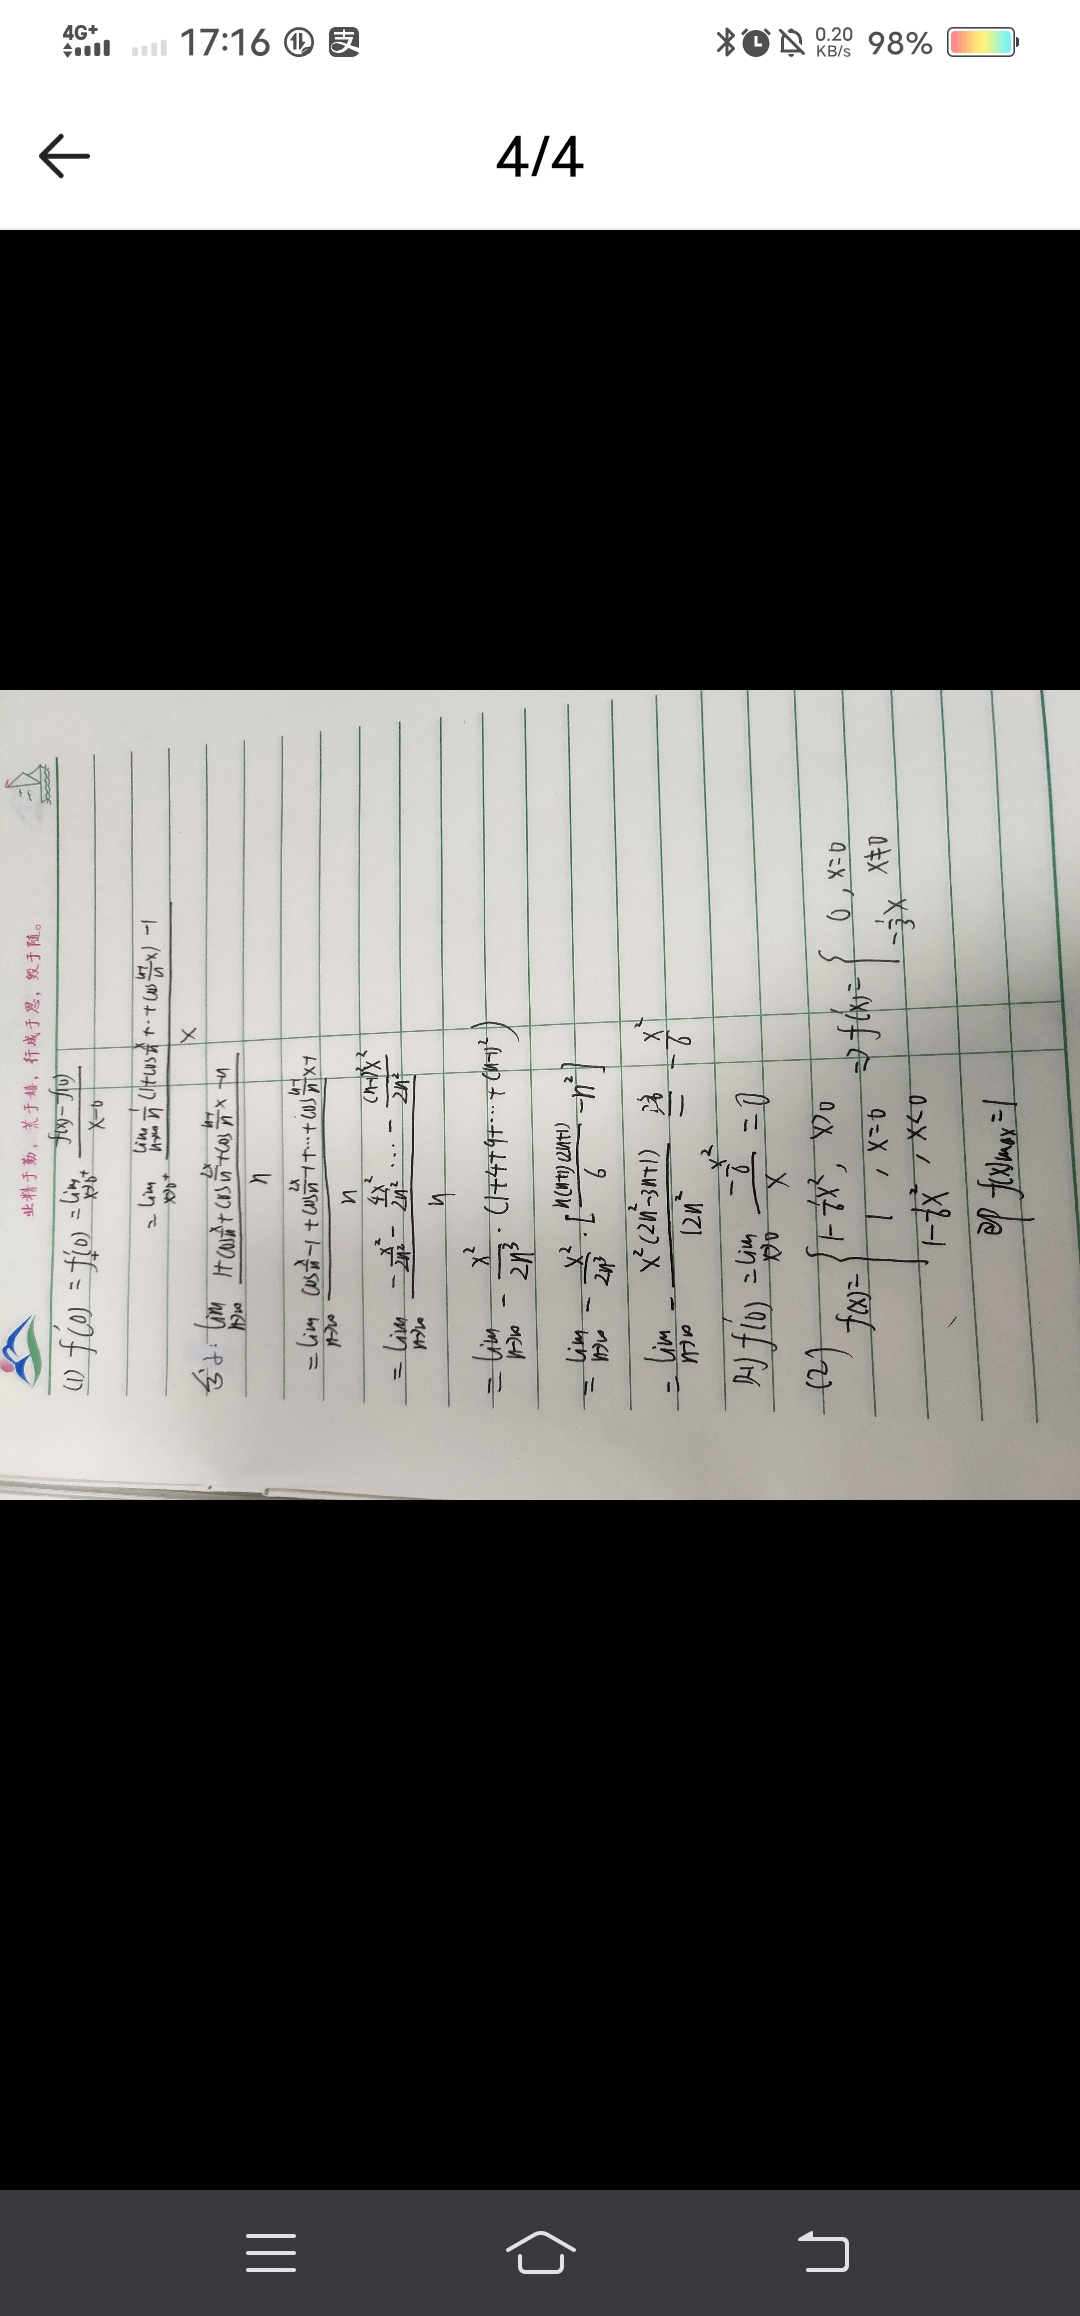 4G+ 17:16 支 0.20 KB/s 98%
4/4
业精于勤，荒于嬉，行成于思，毁于随。
(1) f'(0) = f'₊(0) = lim x→0⁺ (f(x)-f(0))/(x-0)
= lim x→0⁺ (lim n→∞ 1/n (1+cos x/n +…+cos (n-1)/n x) -1)/x
令: lim n→∞ (1+cos x/n + cos 2x/n +cos (n-1)/n x -n)/n
= lim n→∞ (cos x/n -1 + cos 2x/n -1 +…+ cos (n-1)/n x -1)/n
= lim n→∞ (- x²/2n² - 4x²/2n² … - (n-1)²x²/2n²)/n
= lim n→∞ - x²/2n³ · (1+4+9+…+(n-1)²)
= lim n→∞ - x²/2n³ · [n(n+1)(2n+1)/6 -n²]
= lim n→∞ - x²(2n²-3n+1)/12n² = - x²/6
则 f'(0) = lim x→0 (-x²/6)/x = 0
(2) f(x)= { 1-1/6x², x>0
1, x=0
1-1/6x², x<0
⇒ f'(x)= { 0, x=0
-1/3x x≠0
即 f(x)max=1